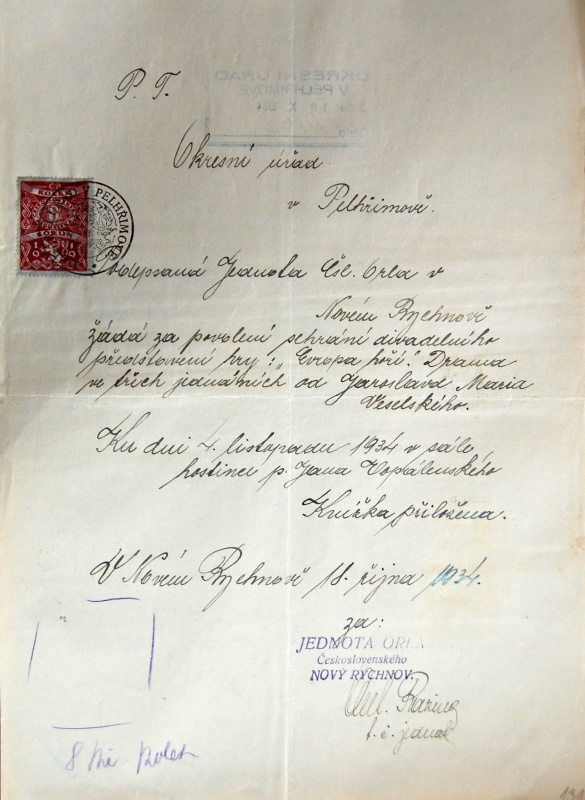 P. T.
Okresní úřad
v Pelhřimově.
PELHŘIMOV
KOLEK
KORUN
odepsaná Jednota Čsl. Orla v
Novém Rychnově
žádá za povolení sehrání divadelního
představení hry: „Evropa hoří". Drama
ve třech jednátních od Jaroslava Maria
Veselského.
Ku dni 4. listopadu 1934 v sále,
hostinci p. Jana Kopálenského
Knížka přiložena.
V Novém Rychnově 18. října 1934.
za:
JEDNOTA ORLA
Československého
NOVÝ RYCHNOV.
t. č. jednat
8 Kč kolek